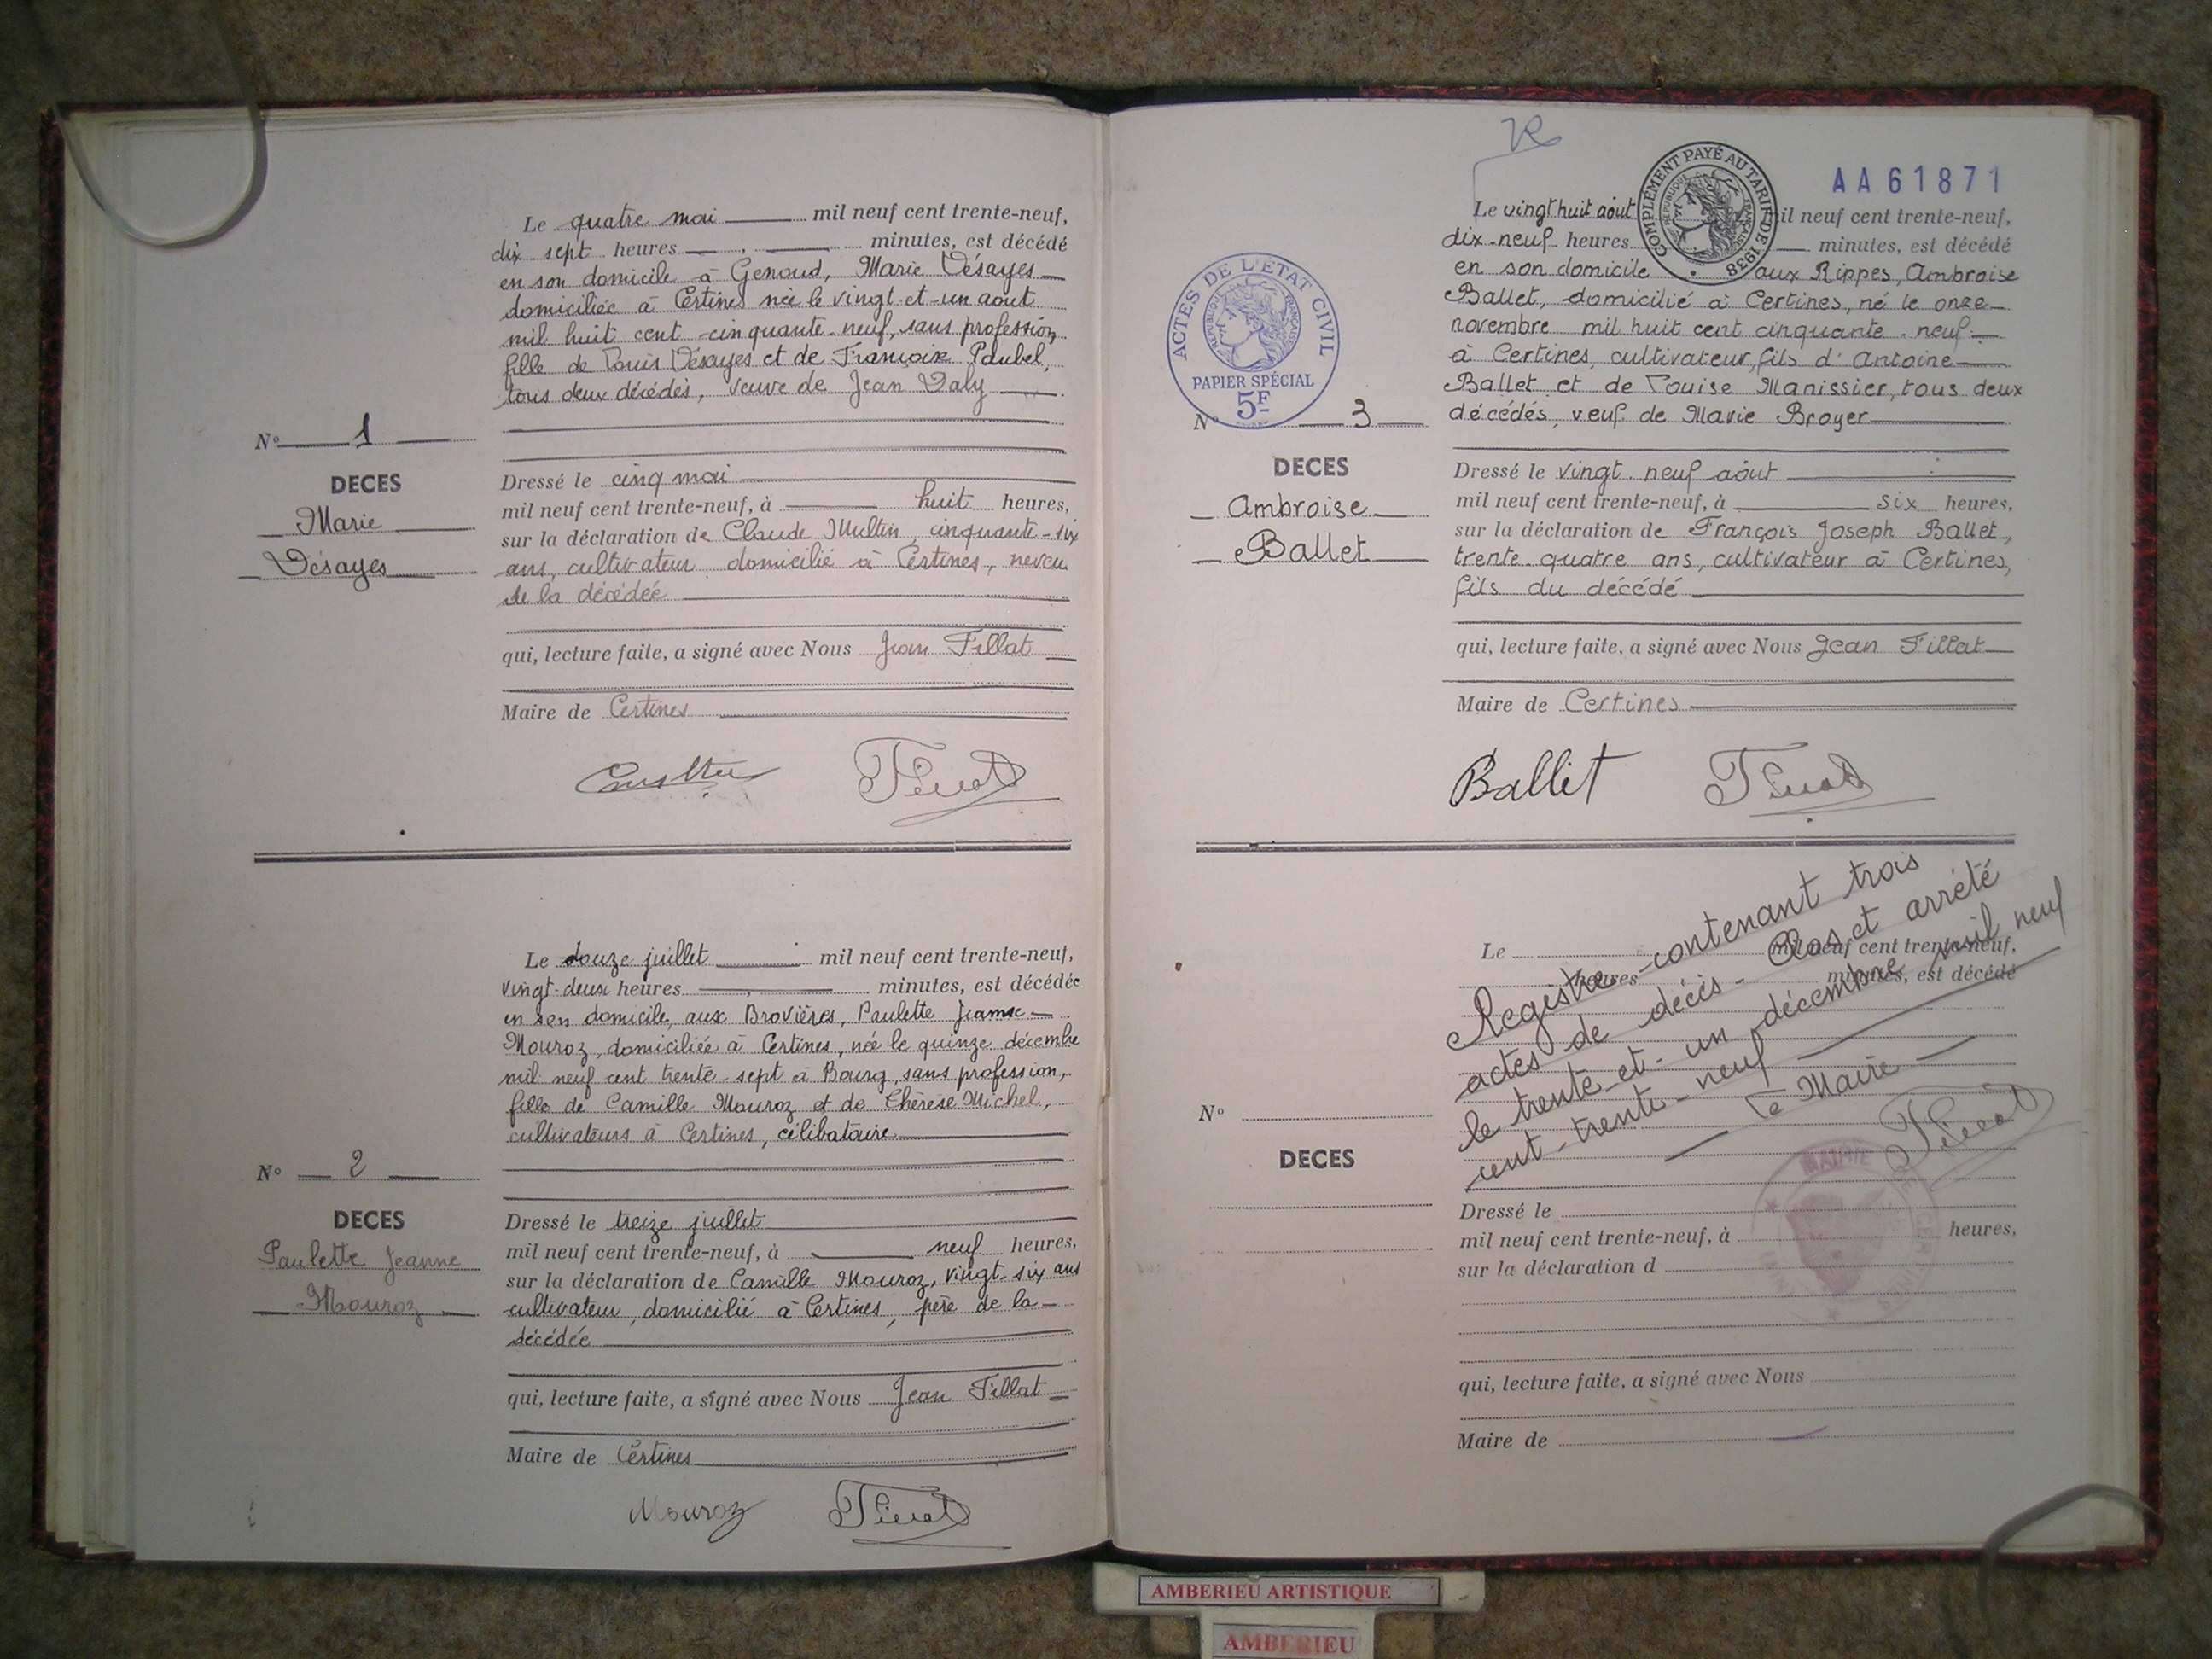 Le quatre mai mil neuf cent trente-neuf,
dix sept heures minutes, est décédé
en son domicile à Genoud, Marie Désayes
domiciliée à Certines née le vingt-et-un aout
mil huit cent cinquante-neuf, sans profession,
fille de Louis Désayes et de Françoise Paubel,
tous deux décédés, veuve de Jean Daly
N° 1
DECES
Marie
Désayes
Dressé le cinq mai
mil neuf cent trente-neuf, à huit heures,
sur la déclaration de Claude cinquante-six
ans, cultivateur domicilié à Certines, neveu
de la décédée
qui, lecture faite, a signé avec Nous Jean Fillat
Maire de Certines
Le douze juillet mil neuf cent trente-neuf,
vingt-deux heures minutes, est décédée
en son domicile, aux Brovières, Paulette Jeanne
Mouroz, domiciliée à Certines, née le quinze décembre
mil neuf cent trente-sept à Bourg, sans profession,
fille de Camille Mouroz et de Thérèse Michel,
cultivateurs à Certines, célibataire
N° 2
DECES
Paulette Jeanne
Mouroz
Dressé le treize juillet
mil neuf cent trente-neuf, à neuf heures,
sur la déclaration de Camille Mouroz, vingt-six ans
cultivateur, domicilié à Certines, père de la
décédée
qui, lecture faite, a signé avec Nous Jean Fillat
Maire de Certines
Mouroz
COMPLÉMENT PAYÉ AU TARIF DE 1938
RÉPUBLIQUE FRANÇAISE
AA61871
Le vingt huit août mil neuf cent trente-neuf,
dix-neuf heures minutes, est décédé
en son domicile aux Rippes, Ambroise
Ballet, domicilié à Certines, né le onze
novembre mil huit cent cinquante-neuf
à Certines, cultivateur, fils d'Antoine
Ballet et de Louise Manissier, tous deux
décédés, veuf de Marie Broyer
ACTES DE L'ETAT CIVIL
RÉPUBLIQUE FRANÇAISE
PAPIER SPÉCIAL
5F
N° 3
DECES
Ambroise
Ballet
Dressé le vingt-neuf août
mil neuf cent trente-neuf, à six heures,
sur la déclaration de François Joseph Ballet,
trente-quatre ans, cultivateur à Certines,
fils du décédé
qui, lecture faite, a signé avec Nous Jean Fillat
Maire de Certines
Ballet
Le mil neuf cent trente-neuf,
heures minutes, est décédé
Registre contenant trois
actes de décès - Clos et arrêté
le trente-et-un décembre mil neuf
cent-trente-neuf
Le Maire
MAIRIE
N°
DECES
Dressé le
mil neuf cent trente-neuf, à heures,
sur la déclaration d
qui, lecture faite, a signé avec Nous
Maire de
AMBERIEU ARTISTIQUE
AMBERIEU